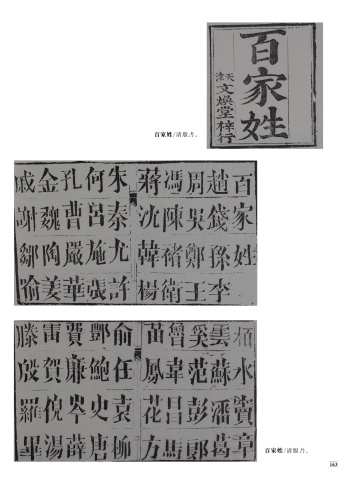 百家姓
天津
文煥堂梓行
百家姓/清版书。
百家姓
趙錢孫李
周吳鄭王
馮陳褚衛
蔣沈韓楊
朱秦尤許
何呂施張
孔曹嚴華
金魏陶姜
戚謝鄒喻
柏水竇章
雲蘇潘葛
奚范彭郎
魯韋昌馬
苗鳳花方
俞任袁柳
酆鮑史唐
費廉岑薛
雷賀倪湯
滕殷羅畢
百家姓/清版书。
163